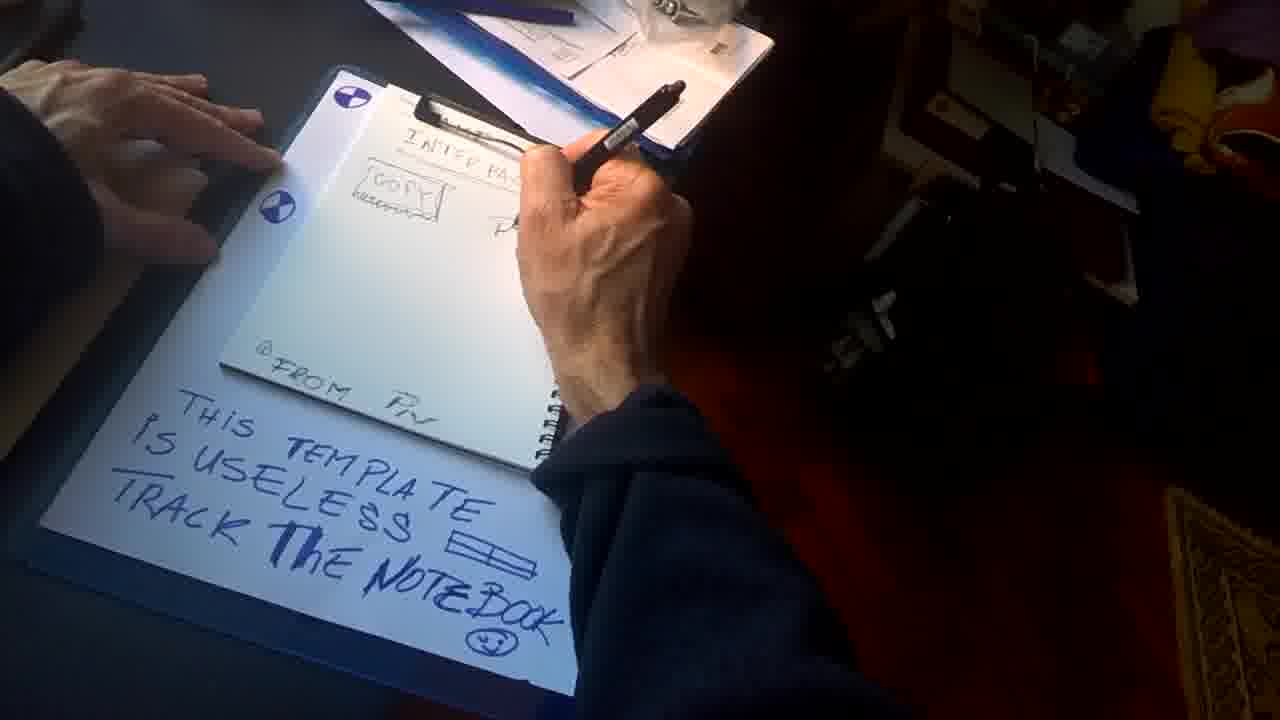 COPY
FROM PW
THIS TEMPLATE
IS USELESS
TRACK THE NOTEBOOK